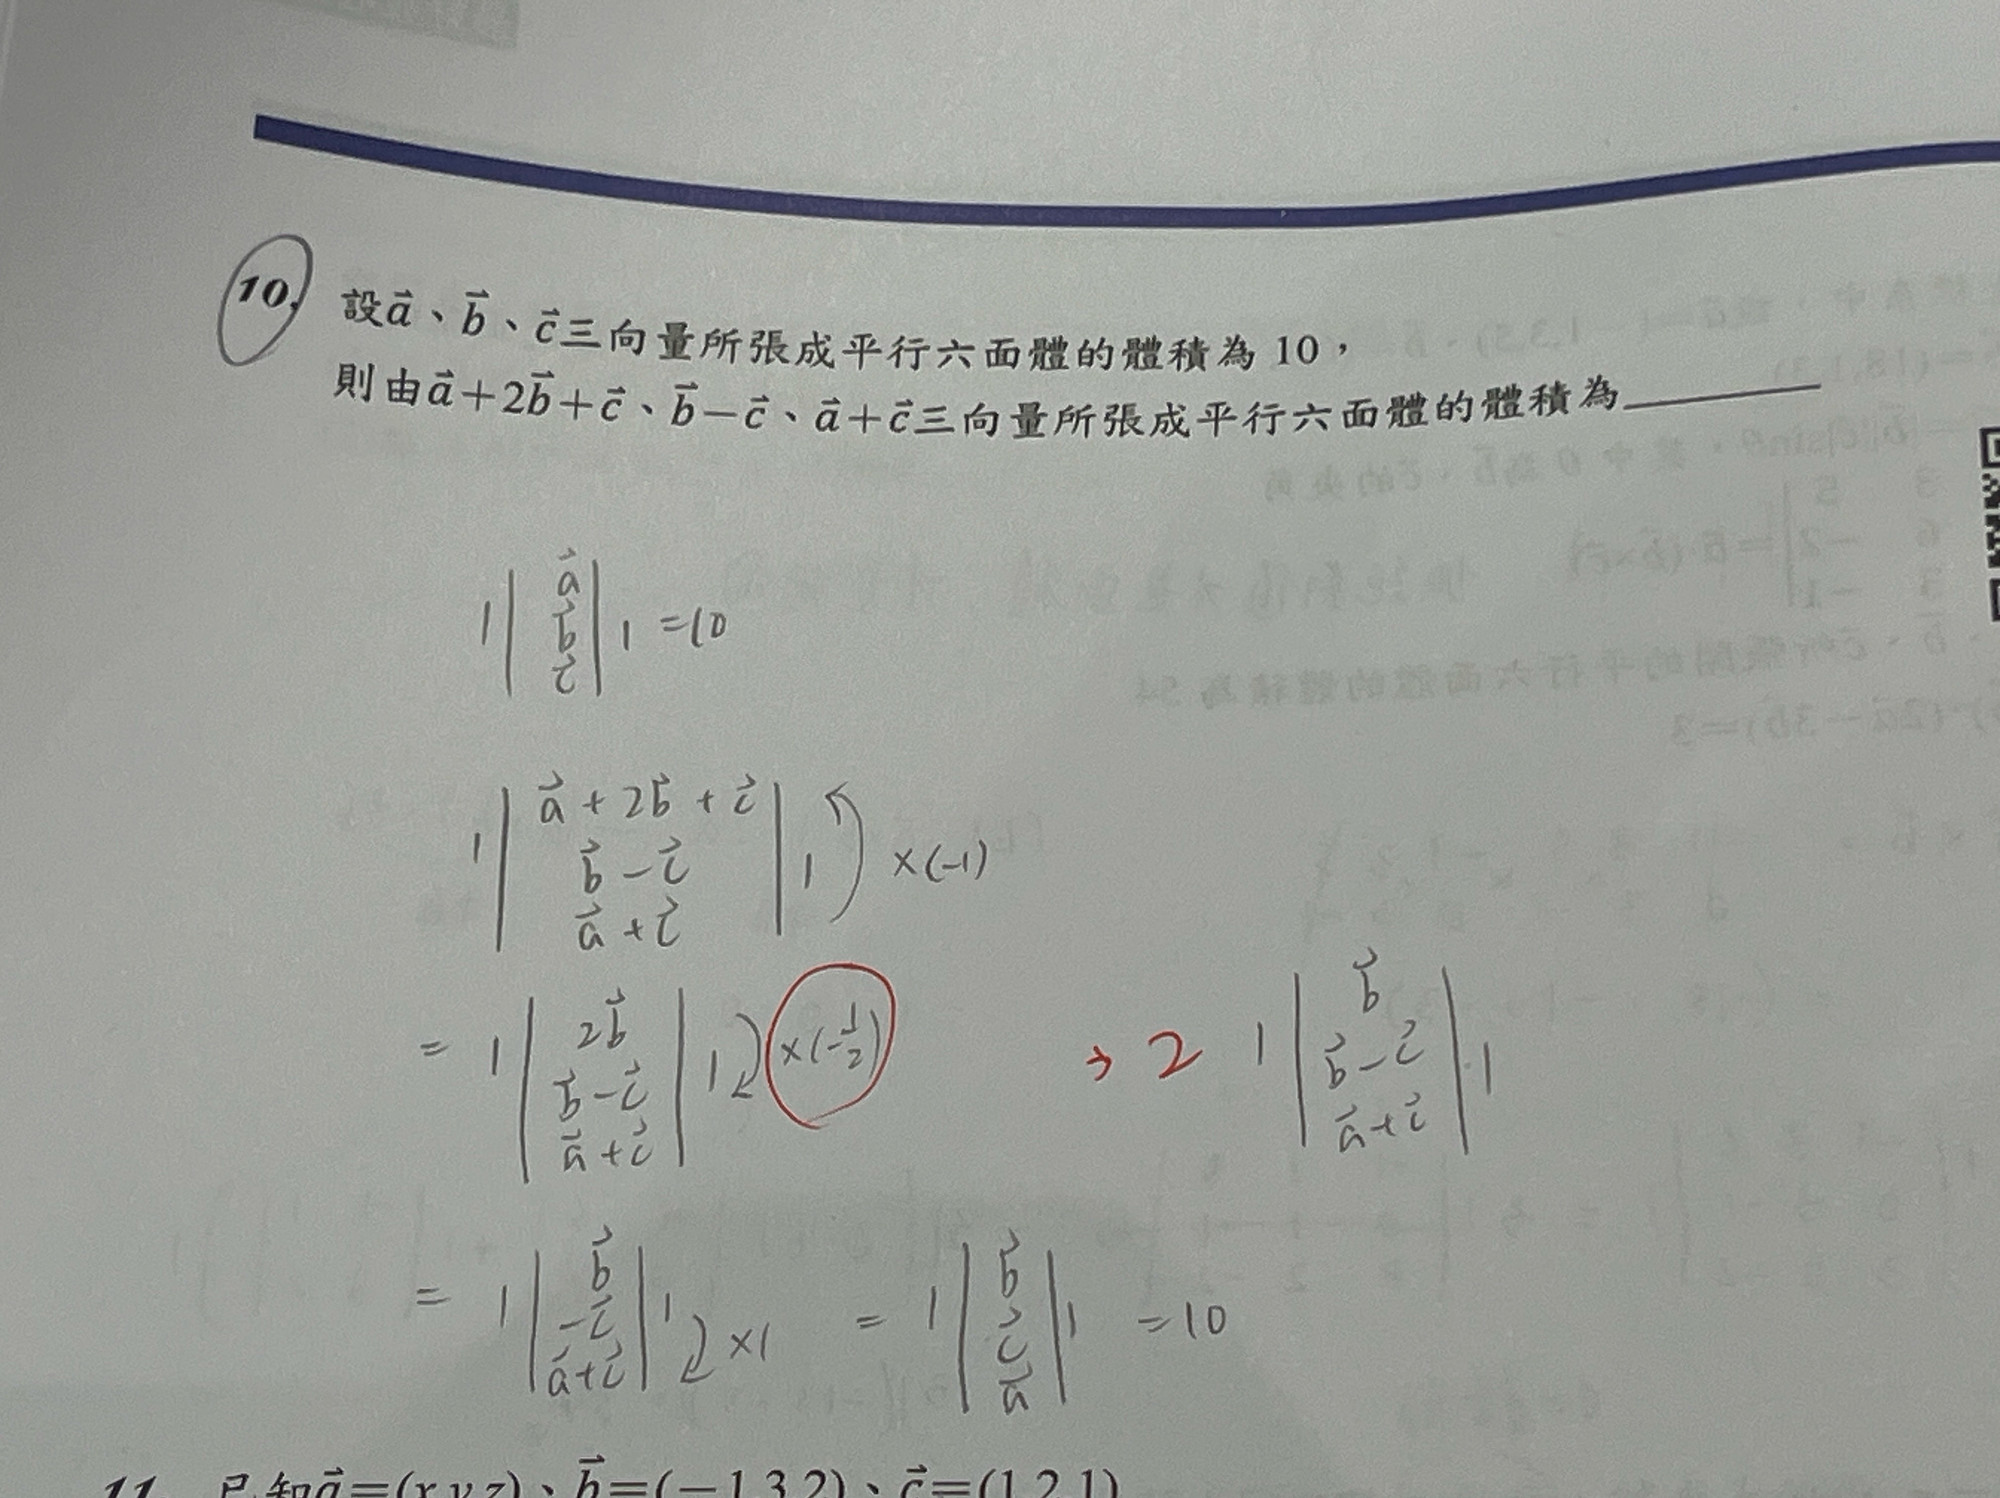 10. 設a⃗、b⃗、c⃗三向量所張成平行六面體的體積為 10，
則由a⃗+2b⃗+c⃗、b⃗−c⃗、a⃗+c⃗三向量所張成平行六面體的體積為______
| | a⃗
b⃗
c⃗ | | =10
| | a⃗ + 2b⃗ + c⃗
b⃗ − c⃗
a⃗ + c⃗ | | ×(−1)
= | | 2b⃗
b⃗−c⃗
a⃗+c⃗ | | ×(−1/2)
→ 2 | | b⃗
b⃗−c⃗
a⃗+c⃗ | |
= | | b⃗
−c⃗
a⃗+c⃗ | | ×1
= | | b⃗
c⃗
a⃗ | | =10
11. 已知a⃗=(x,y,z)、b⃗=(−1,3,2)、c⃗=(1,2,1)